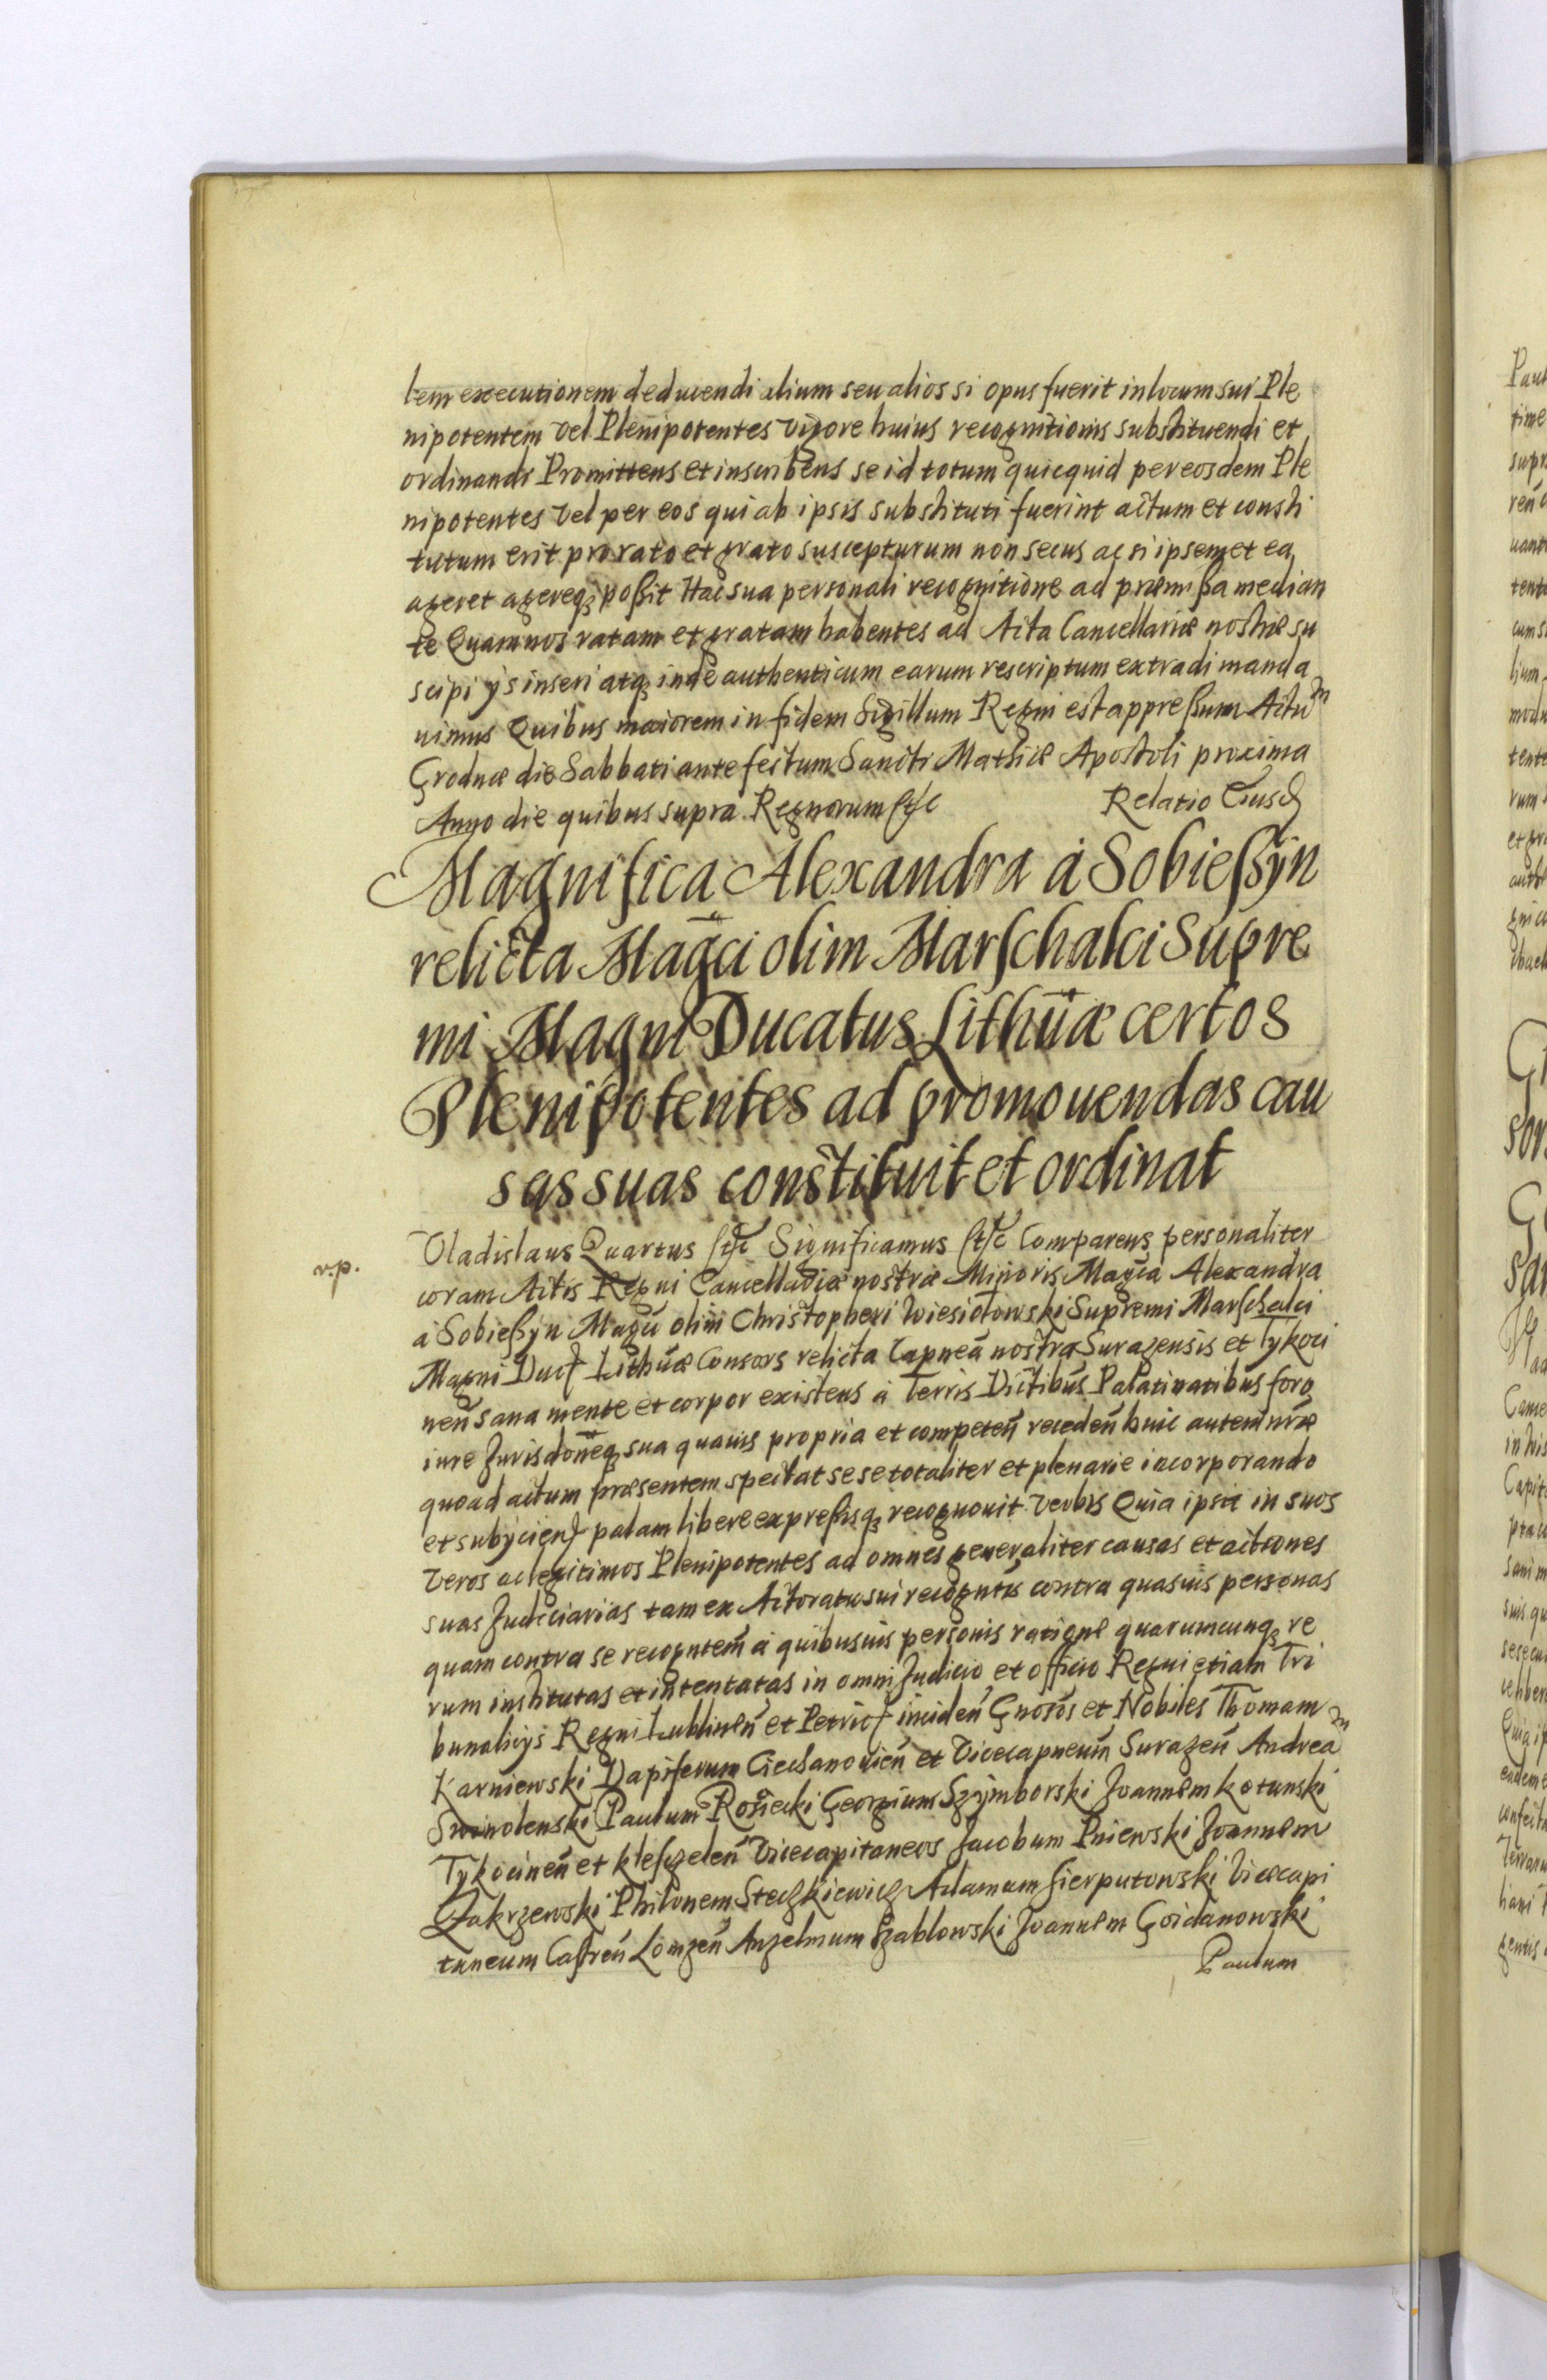 lem executionem deducendi alium seu alios si opus fuerit in locum sui Ple
nipotentem vel Plenipotentes vigore huius recognitionis substituendi et
ordinandi Promittens et inscribens se id totum quicquid per eosdem Ple
nipotentes vel per eos qui ab ipsis substituti fuerint actum et consti
tutum erit pro rato et grato suscepturum non secus ac si ipsemet ea
ageret agereq; poßit Hac sua personali recognitione ad præmißa median
te Quam nos ratam et gratam habentes ad Acta Cancellariæ nostræ su
scipi ijs inseri atq; inde authenticum earum rescriptum extradi manda
uimus Quibus maiorem in fidem Sigillum Regni est appreßum Actũ
Grodnæ die Sabbati ante festum Sancti Mathiæ Apostoli proxima
Anno die quibus supra Regnorum etc Relatio Eiusd
Magnifica Alexandra á Sobießyn
relicta Magci olim Marschalci Supre
mi Magni Ducatus Lithuæ certos
Plenipotentes ad promouendas cau
sas suas constituit et ordinat
r.p.
Vladislaus Quartus etc Significamus etc Comparens personaliter
coram Actis Regni Cancellariæ nostræ Minoris Magca Alexandra
á Sobießyn Magci olim Christopheri Wiesiołowski Supremi Marschalci
Magni Duc Lithuæ Consors relicta Capnea nostra Surazensis et Tykoci
nen̄ sana mente et corpor existens á Terris Dictibus Palatinatibus foro
iure Jurisdoneq; sua quauis propria et competen̄ receden̄ huic autem nr̄æ
quoad actum præsentem spectat sese totaliter et plenarie incorporando
et subijciend palam libere expreßisq; recognouit verbis Quia ipsa in suos
veros ac legitimos Plenipotentes ad omnes generaliter causas et actiones
suas Judiciarias tam ex Actoratu sui recogntis contra quasuis personas
quam contra se recogntem á quibusuis personis ratione quarumcunq; re
rum institutas et intentatas in omni Judicio et officio Regni etiam Tri
bunalicijs Regni Lublinen̄ et Petric inciden̄ Gnosos et Nobiles Thomam
Karniewski Dapiferum Ciechanouien̄ et Vicecapneum Surazen̄ Andrea
Smolenski Paulum Rosiecki Georgium Szymborski Joannem Kotunski
Tykocinen̄ et Kleszczelen̄ Vicecapitaneos Jacobum Pniewski Joannem
Zakrzewski Philonem Steczkiewicz Adamum Sierputowski Vicecapi
taneum Castren̄ Lomzen̄ Anzelmum Szablowski Joannem Goidanowski
Paulum